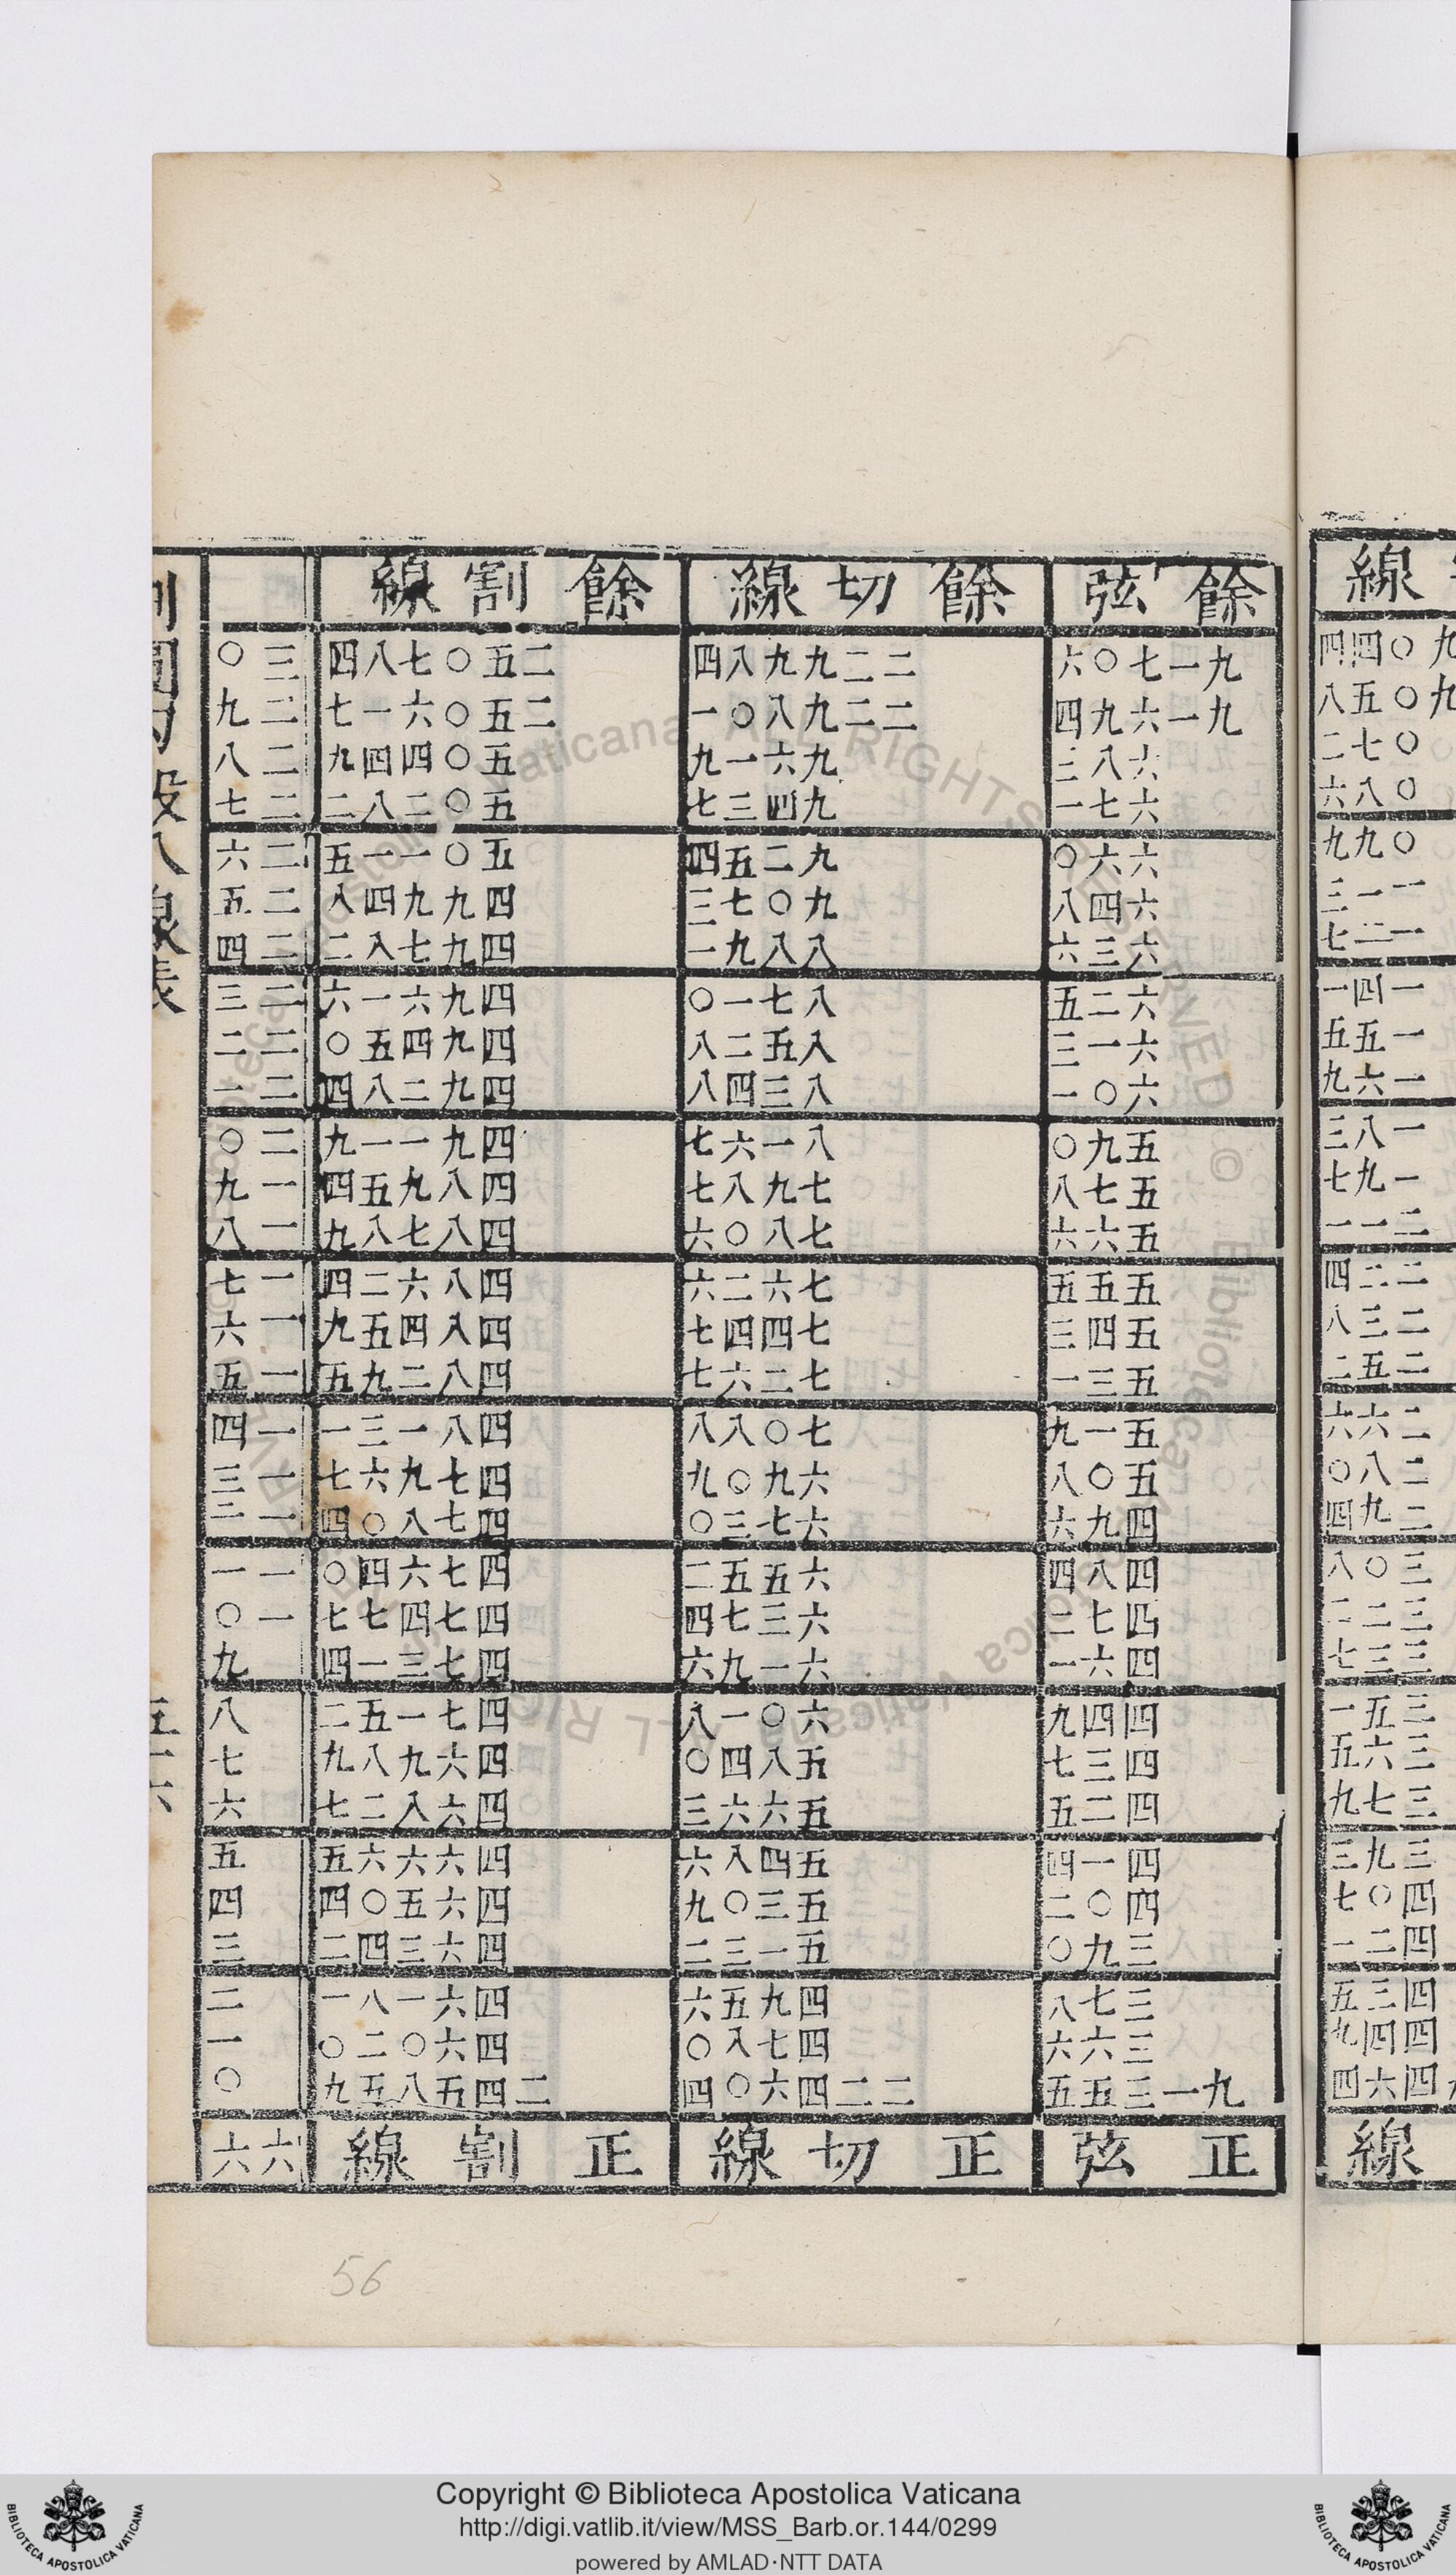 線
九〇四四
九〇五八
〇七二
〇八六
〇九九
一一三
一二七
一四一
一五五
一六九
一八三
一九七
二一一
二二四
二三八
二五二
二六六
二八〇
二九四
三〇八
三二二
三三七
三五一
三六五
三七九
三九三
四〇七
四二一
四三五
四四九
四六四
線
餘弦 餘切線 餘割線
九一七〇六 二二九九八四 二五〇七八四 三〇
九一六九四 二二九八〇一 二五〇六一七 二九
六八三 九六一九 五〇四四九 二八
六七一 九四三七 五〇二八二 二七
六六〇 九二五四 五〇一一五 二六
六四八 九〇七三 四九九四八 二五
六三六 八八九一 四九七八二 二四
六二五 八七一〇 四九六一六 二三
六一三 八五二八 四九四五〇 二二
六〇一 八三四八 四九二八四 二一
五九〇 八一六七 四九一一九 二〇
五七八 七九八七 四八九五四 一九
五六六 七八〇六 四八七八九 一八
五五五 七六二六 四八六二四 一七
五四三 七四四七 四八四五九 一六
五三一 七二六七 四八二九五 一五
五一九 七〇八八 四八一三一 一四
五〇八 六九〇九 四七九六七 一三
四九六 六七三〇 四七八〇四 一二
四八四 六五五二 四七六四〇 一一
四七二 六三七四 四七四七七 一〇
四六一 六一九六 四七三一四 九
四四九 六〇一八 四七一五二 八
四三七 五八四〇 四六九八九 七
四二五 五六六三 四六八二七 六
四一四 五四八六 四六六六五 五
四〇二 五三〇九 四六五〇四 四
三九〇 五一三二 四六三四二 三
三七八 四九五六 四六一八一 二
三六六 四七八〇 四六〇二〇 一
九一三五五 二二四六〇四 二四五八五九 〇
正弦 正切線 正割線 六六
割圓勾股八線表
五十六
56
Copyright © Biblioteca Apostolica Vaticana
http://digi.vatlib.it/view/MSS_Barb.or.144/0299
powered by AMLAD·NTT DATA
BIBLIOTECA APOSTOLICA VATICANA
BIBLIOTECA APOSTOLICA VATICANA